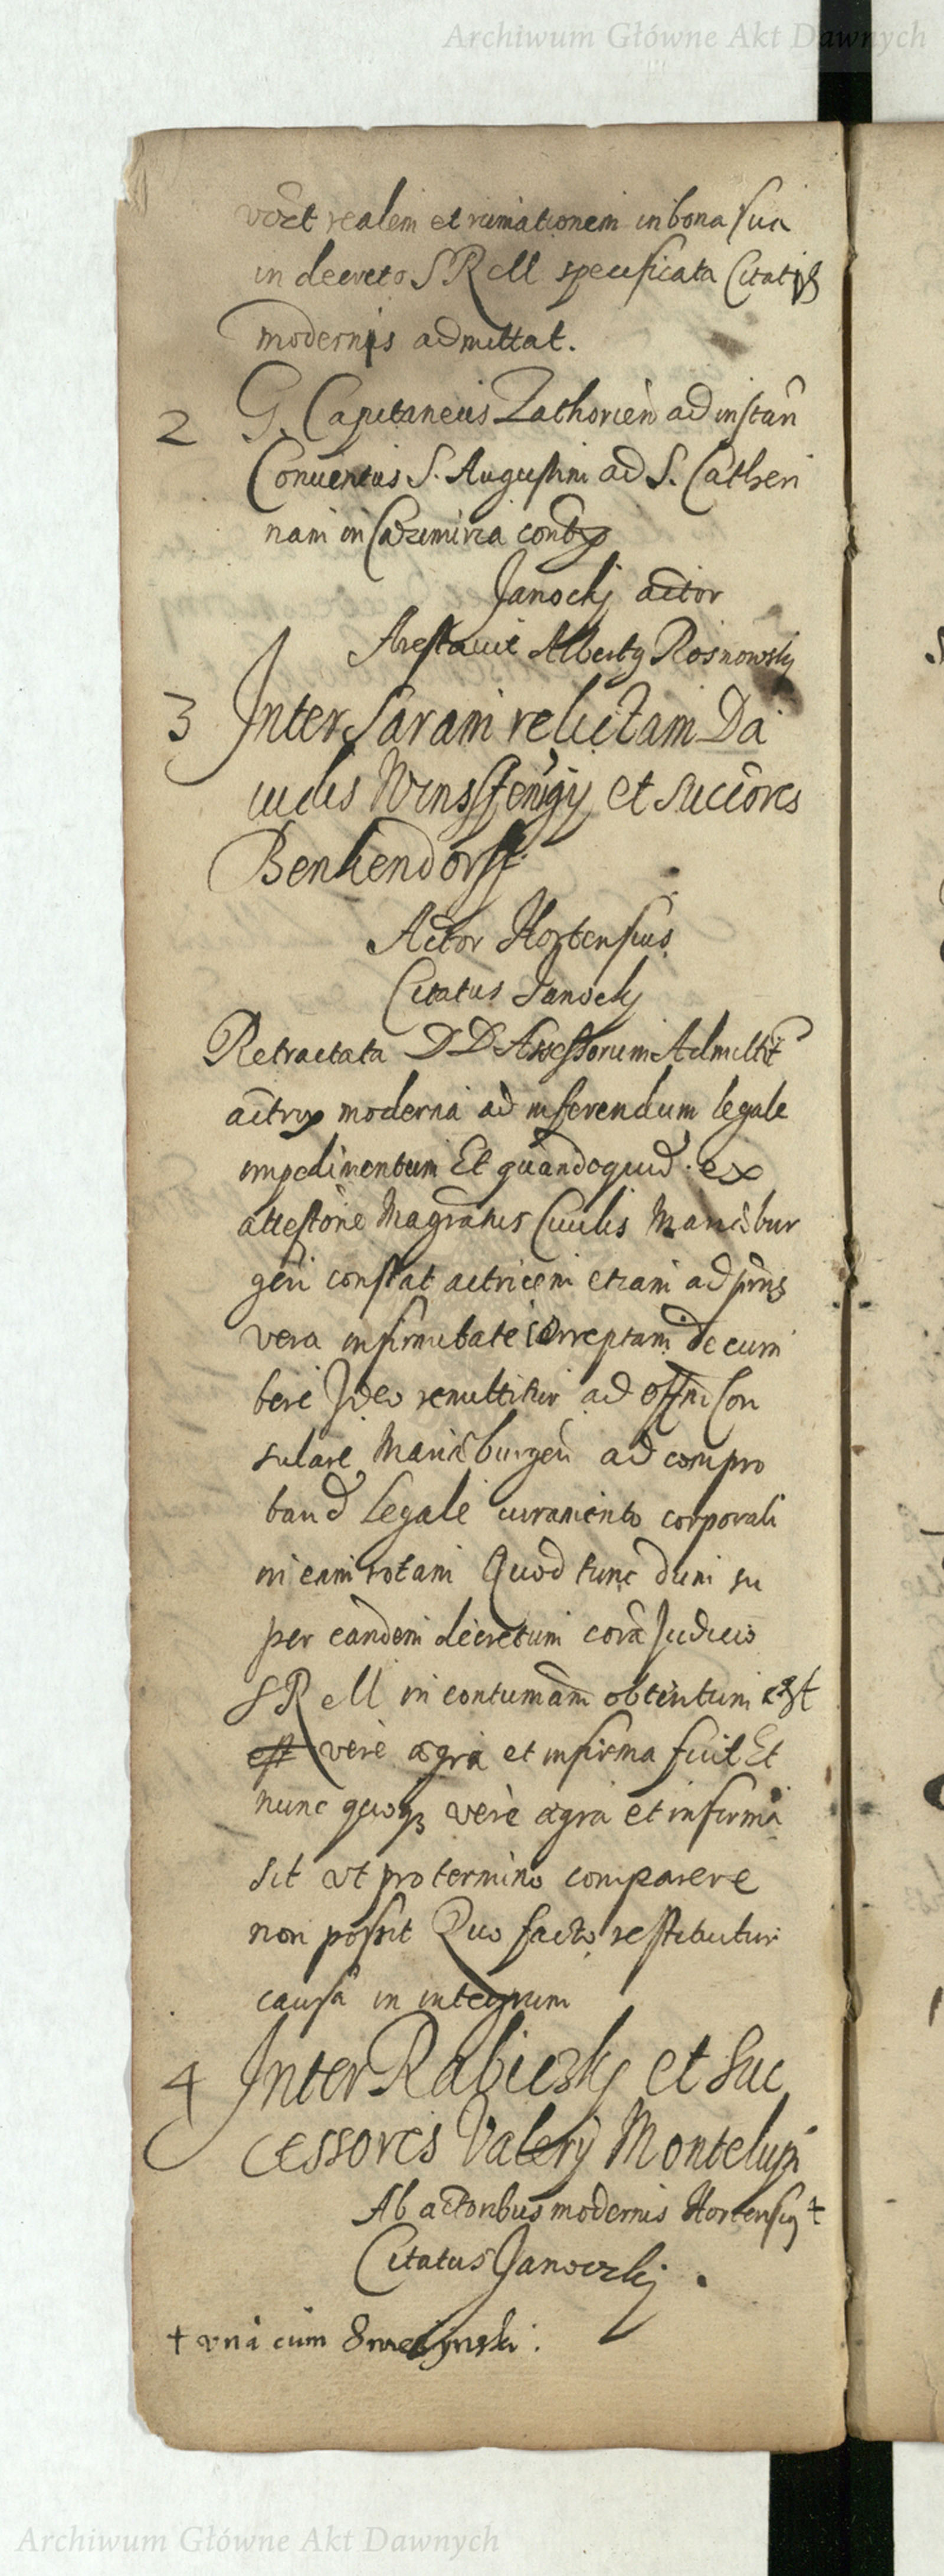 Archiwum Główne Akt Dawnych
realem et rimationem in bona sua
in decreto S R M specificata Citatis
modernis admittat.
2 G. Capitaneus Zathorien ad instan
Conuentus S. Augustini ad S. Catheri
nam in Cazimiria
Janockj actor
Arestauit Albertg Rosnowskj
3 Inter Saram relictam Da
uidis et succores
Benkendorff
Actor Hortensius
Citatus Janockj
Retractata D D Assessorum Admittit
actrix moderna ad inferendum legale
impedimentum Et quandoquid ex
attestone Magratus Ciuilis Mariebur
gen constat actricem etiam ad pns
vera infirmitate correptam decum
bere Ideo remittitur ad offm Con
sulare Marieburgen ad compro
band legale iuramento corporali
in eam rotam Quod tunc dum su
per eandem decretum cora Judicio
S R M in contumam obtentum est
est vere ægra et infirma fuit Et
nunc quoqz vere ægra et infirma
sit vt pro termino comparere
non possit Quo facto restituitur
causa in integrum
4 Inter Rabiczkj et Suc
cessores Valerij Montelupi
Ab actoribus modernis Hortensig +
Citatus Janoczkj .
+ vna cum
Archiwum Główne Akt Dawnych